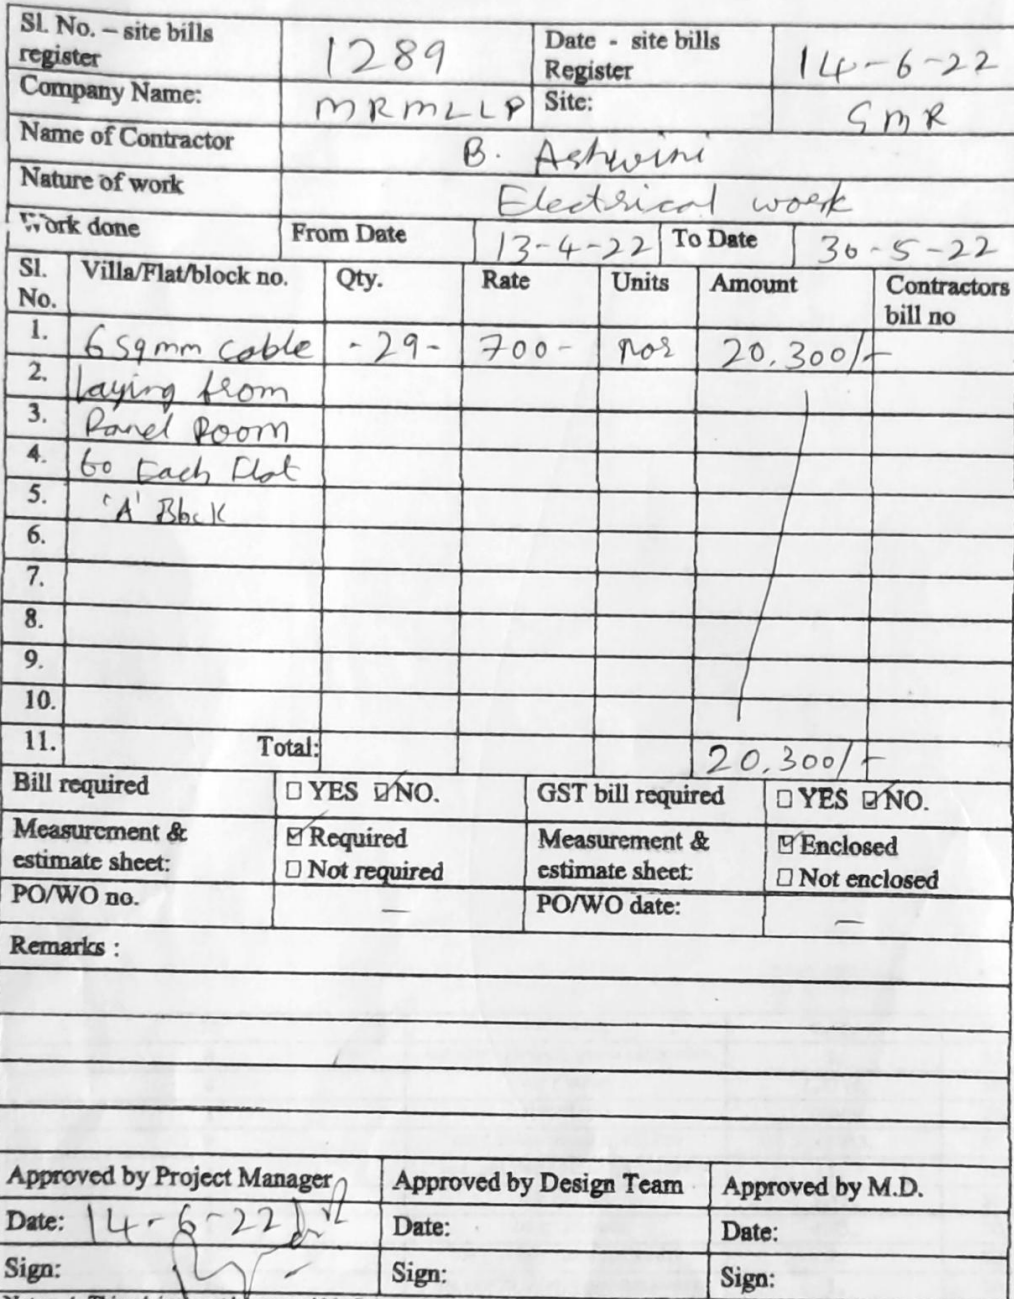 Sl. No. – site bills register 1289 Date - site bills Register 14-6-22
Company Name: MRMLLP Site: GMR
Name of Contractor B. Ashwini
Nature of work Electrical work
Work done From Date 13-4-22 To Date 30-5-22
Sl. No. Villa/Flat/block no. Qty. Rate Units Amount Contractors bill no
1. 6 sqmm cable -29- 700- nos 20,300/-
2. laying from
3. Panel Room
4. to Each Flat
5. 'A' Block
6.
7.
8.
9.
10.
11. Total: 20,300/-
Bill required ☐ YES ☑ NO. GST bill required ☐ YES ☑ NO.
Measurement & estimate sheet: ☑ Required ☐ Not required Measurement & estimate sheet: ☑ Enclosed ☐ Not enclosed
PO/WO no. — PO/WO date: —
Remarks :
Approved by Project Manager Approved by Design Team Approved by M.D.
Date: 14-6-22 Date: Date:
Sign: Sign: Sign: